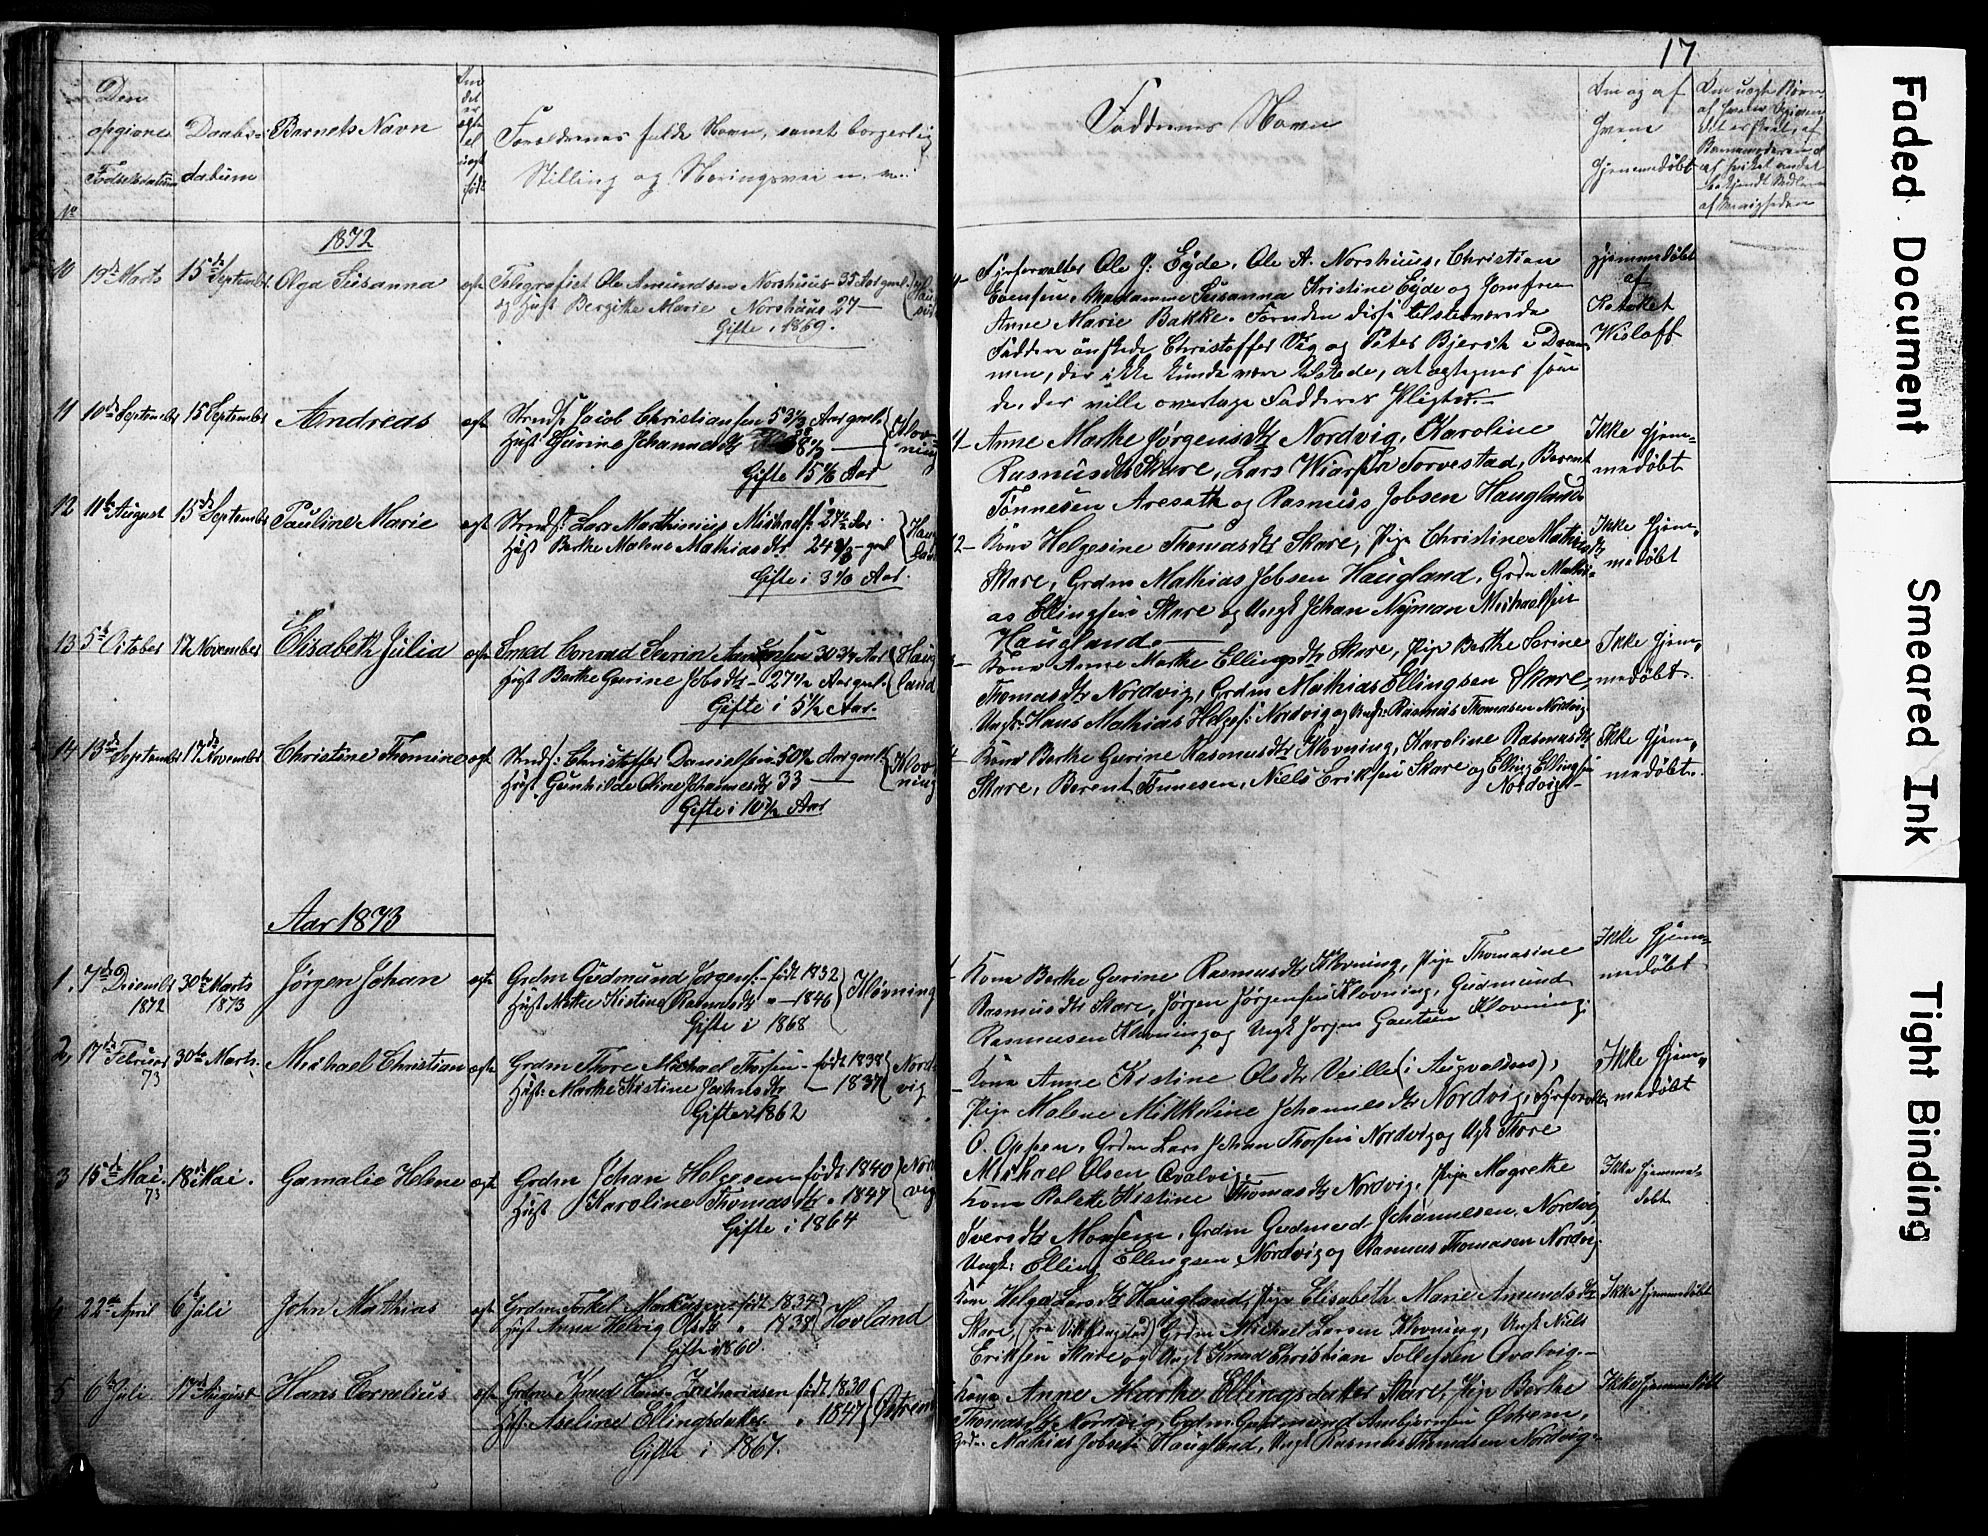 17
Den opgivne Fødselsdatum
Daabsdatum
Barnets Navn
Om det er egte el uegt født
Forældrenes fulde Navn, samt borgerlig Stilling og Næringsvei m. m.
Faddernes Navn
Om og af hvem hjemmedøbt
No
1872
10 19de Marts 15de September Olga Susanna egte Telegrafist Ole Amundsen Norshuus 35 Aar gml.
og Hust Bergithe Marie Norshuus 27 —
Gifte i 1869.
Fyrforvalter Ole J. Eyde, Ole A. Norshuus, Christian
Evensen, Madamme Susanna Kristine Eyde og Jomfru
Anne Marie Bakke. Foruden disse tilstedeværende
Faddere ønskede Christoffer Vig og Peter Bjersk i Dram
men, der ikke kunde være tilstede, at optegnes som
de, der ville overtage Fadderes Pligter.—
Hjemmedøbt
af
Wisloff
11 10de September 15 September Andreas egt Strmdf. Jacob Christiansen 53 1/3 Aar gml.
Hust Gurine Johannesdtr 38 1/3 —
Gifte 15 1/6 Aar
Kløv-
ning
Anne Marthe Jørgensdtr Nordvig, Karoline
Rasmusdtr Skare, Lars Torvestad, Berent
Tønnesen og Rasmus Jobsen Haugland
Ikke Hjem-
medøbt
12 11te August 15de September Pauline Marie egt Strmdf. Lars Marthinius Michaelf. 27 1/2 Aar
Hust Berthe Malene Mathiasdtr 24 2/3 — gml
Gifte i 3 1/6 Aar.
Haug
land
Kone Helgesine Thomasdtr Skare, Pige Christine Mathiasdtr
Skare, Grdm Mathias Jobsen Haugland, Grdm Mathi-
as Ellingsen Skare og Ungk Johan Nyman Michaelsen
Haugland.
Ikke Hjem-
medøbt
13 5te October 17 November Elisabeth Julia egte Smed Conrad Severin 30 3/4 Aar
Hust Berthe Gurine Jobsdtr — 27 1/2 Aar gml.
Gifte i 5 1/2 Aar.
Haug
land
Kone Anne Marthe Ellingsdtr Skare, Pige Berthe Serine
Thomasdtr Nordvig, Grdm Mathias Ellingsen Skare,
Ungk. Hans Mathias Helgef. Nordvig og Ungk. Rasmus Thomasen Nordvig
Ikke Hjem-
medøbt.
14 13de September 17de November Christine Thomine egt Strmdf: Christoffer Danielsen 50 1/2 Aar gml.
Hust. Gunhilde Oline Johannesdtr 33 —
Gifte i 10 1/2 Aar
Kløv
ning
Kone Berthe Gurine Rasmusdtr Kløvning, Karoline Rasmusdtr
Skare, Berent Tønnesen, Niels Eriksen Skare og Elling Ellingsen
Nordvig—
Ikke Hjem-
medøbt.
Aar 1873
1. 7de Decembr 1872 30te Marts 1873 Jørgen Johan egte Grdm Gudmund Jørgens.— født 1832
Hust. Marthe Kistine Rasmusdtr " — 1846
Gifte i 1868
Kløvning
Kone Berthe Gurine Rasmusdtr Kløvning, Pige Thomasine
Rasmusdtr Skare, Jørgen Jørgensen Kløvning, Gudmund
Rasmusen Kløvning og Ungk Jørgen Gautsen Kløvning.
Ikke Hjem-
medøbt
2 17de Februar 73 30te Marts. Michael Christian egte Grdm Thore Michael Thorsen — født 1838
Hust: Marthe Kistine Jochnsdtr — 1837
Gifte i 1862
Nord
vig
Kone Anne Kistine Olsdtr Veille (i Augvaldsnes),
Pige Malene Mikkeline Johannesdtr Nordvig, Fyrforvalter
O. Oppen, Grdm Lars Johan Thorsen Nordvig og Ungk Thore
Michael Olsen Qvalvig—
Ikke Hjem-
medøbt
3 15de Mai. 73 18de Mai. Gamalie Helene egte Grdm Johan Helgesen — født 1840
Hust Karoline Thomasdtr " 1847
Gifte i 1864
Nord
vig
Kone Kistine Thomasdtr Nordvig, Pige Magrethe
Iversdtr, Grdm Gudmund Johannesen Nordvig
Ungk: Elling Ellingsen Nordvig og Rasmus Thomasen Nordvig.
Ikke Hjemme-
døbt
4 22de April 6te Juli John Mathias egt Grdm Torkel Markusen født 1834
Hust Anna Helvig Olsdtr " 1838
Gifte i 1860
Hovland
Kone Helga Larsdtr Haugland, Pige Elisabeth Marie Amundsdtr
Skare, Grdm Michael Larsen Kløvning, Ungk Niels
Eriksen Skare og Ungk Knud Christian Tollefsen Qvalvig—
Ikke Hjemmedøbt
5 6te Juli 17de August Hans Cornelius egte Grdm Knud Hans Zachariasen født 1830
Hst. Axeline Ellingsdatter " 1847
Gifte i 1867.
Østrem
Kone Anne Marthe Ellingsdatter Skare, Pige Berthe
Thomasdtr Nordvig, Grdm. Gudmund Ambjørnsen Østrem,
Grdm. Mathias Jobsen Haugland, Ungk Rasmus Thomasen Nordvig—
Ikke Hjemmedøbt
Faded Document
Smeared Ink
Tight Binding